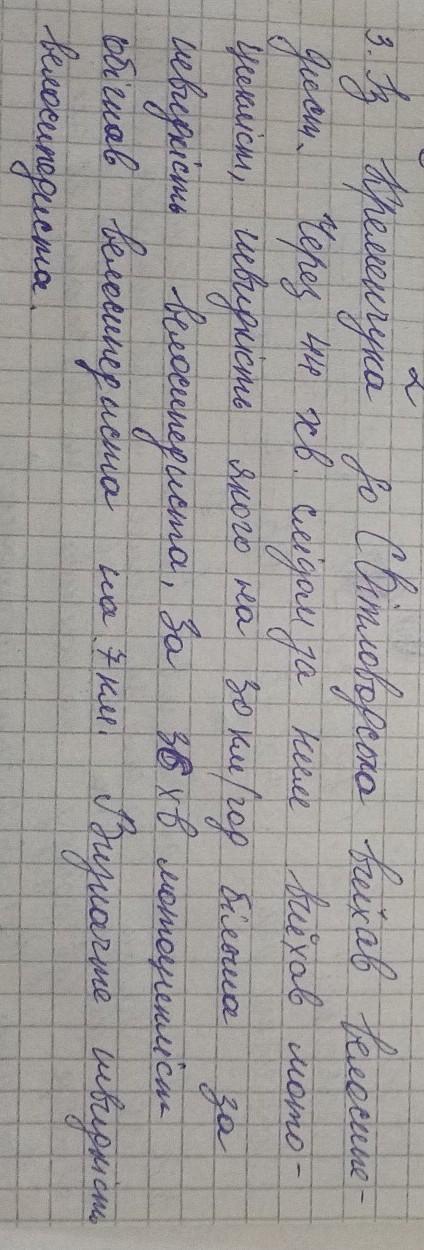 2
3. Із Кременчука до Світловодська виїхав велосипе-
дист. Через 44 хв. слідом за ним виїхав мото-
цикліст, швидкість якого на 30 км/год більша за
швидкість велосипедиста. За 36 хв мотоцикліст
обігнав велосипедиста на 7 км. Визначте швидкість
велосипедиста.